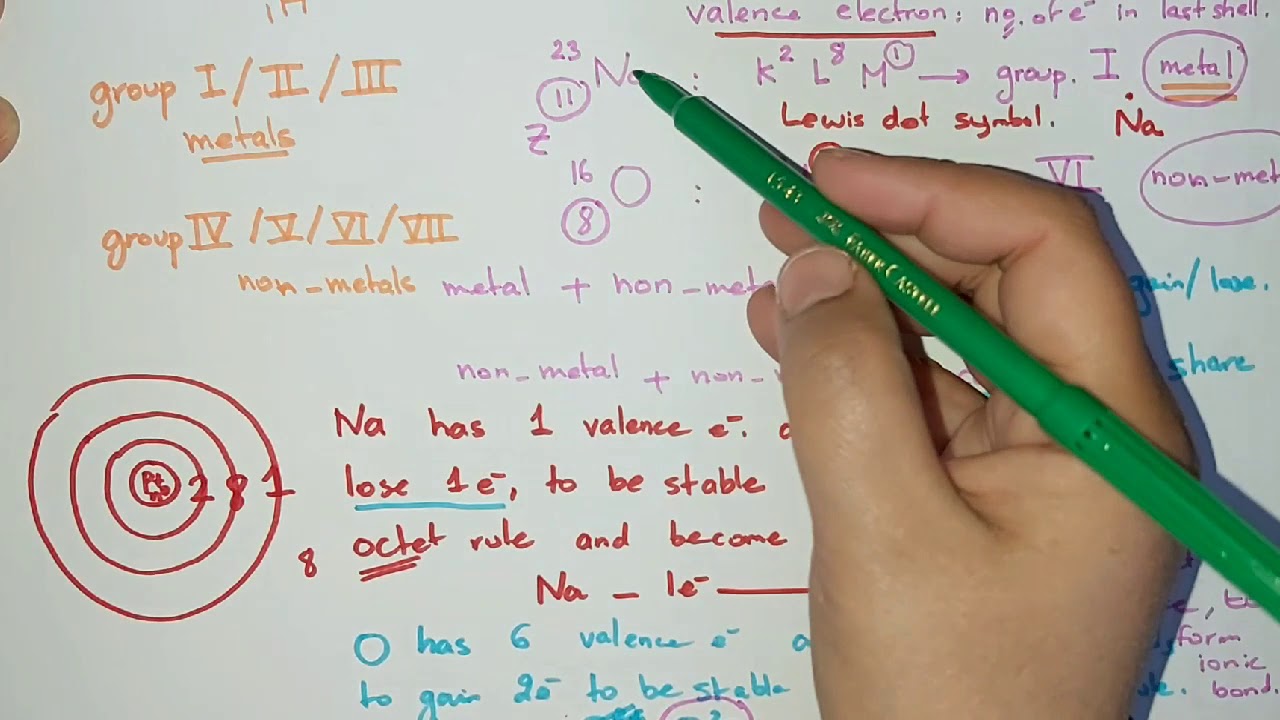 1H
valence electron: no. of e⁻ in last shell.
group I / II / III
metals
23
11 Na : K² L⁸ M¹ → group. I metal
Z
Lewis dot symbol. Na
16
8 O : VI non-met
group IV / V / VI / VII
non-metals
metal + non-met gain/lose.
non-metal + non- share
Na has 1 valence e⁻.
2 8 1
lose 1e⁻, to be stable
8 octet rule and become
Na – 1e⁻
O has 6 valence e⁻
form
ionic
to gain 2e⁻ to be stable
bond.